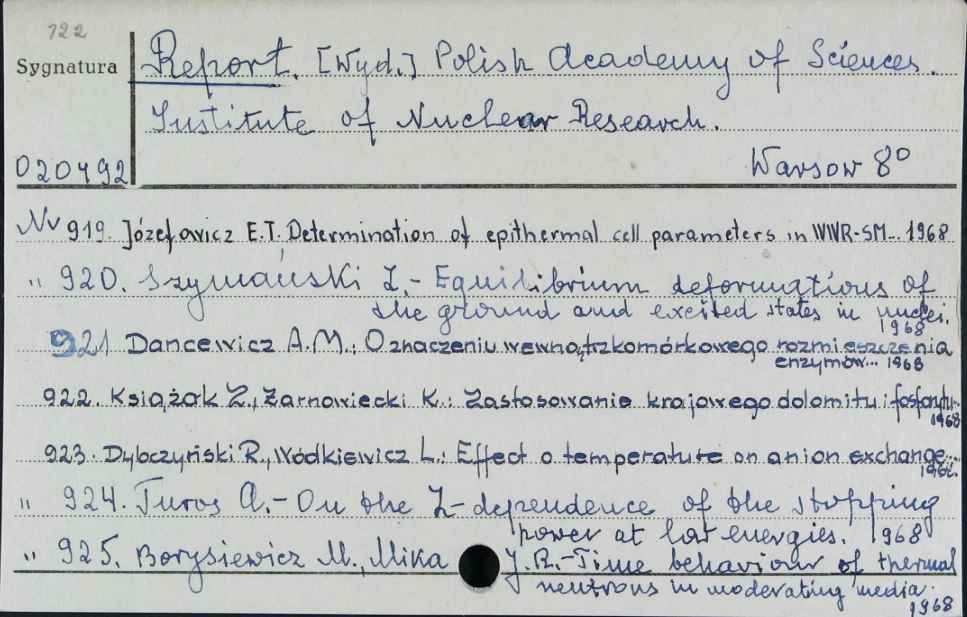 122
Sygnatura
Report. [Wyd.] Polish Academy of Sciences.
Institute of Nuclear Research.
020492
Warsow 8°
Nr 919. Józefowicz E.T. Determination of epithermal cell parameters in WWR-SM... 1968
" 920. Szymański Z.- Equilibrium deformations of
the ground and excited states in nuclei.
1968
921 Dancewicz A.M.: Oznaczeniu wewnątrzkomórkowego rozmieszczenia
enzymów... 1968
922. Książak Z., Żarnowiecki K.: Zastosowanie krajowego dolomitu i fosforytu..
1968
923. Dybczyński R., Wódkiewicz L.: Effect o temperature on anion exchange...
" 924. Turos A.- On the Z-dependence of the stopping
power at low energies. 1968
" 925. Borysiewicz M., Mika J.R.-Time behaviour of thermal
neutrons in moderating media.
1968